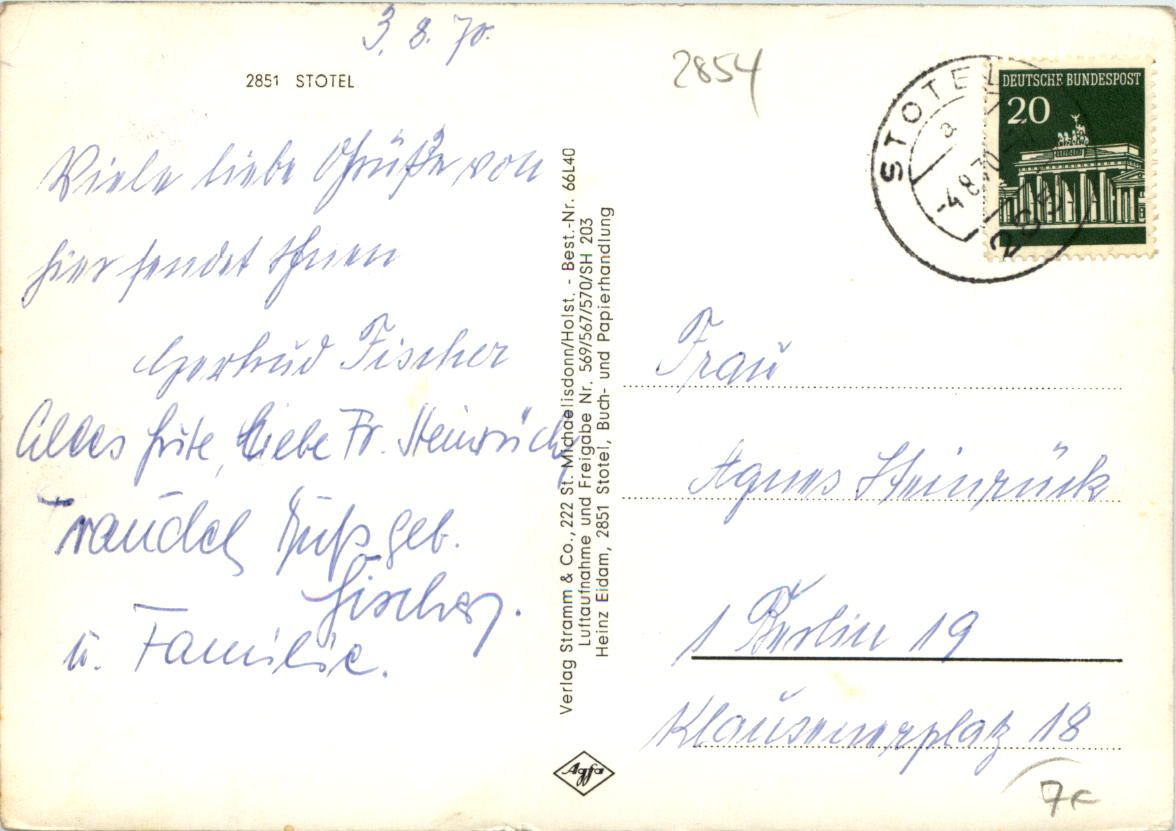 3.8.70.
2851 STOTEL
Viele liebe Grüße von
hier sendet Ihnen
Gertrud Fischer
Alles Gute, Liebe Fr. Steinrück
Traudel geb.
Fischer.
u. Familie.
Verlag Stramm & Co., 222 St. Michaelisdonn/Holst. - Best.-Nr. 66L40
Luftaufnahme und Freigabe Nr. 569/567/570/SH 203
Heinz Eidam, 2851 Stotel, Buch- und Papierhandlung
Agfa
2854
STOTEL
a
-4.8.70
285
DEUTSCHE BUNDESPOST
20
Frau
Agnes Steinrück
1 Berlin 19
Klausenerplatz 18
7€